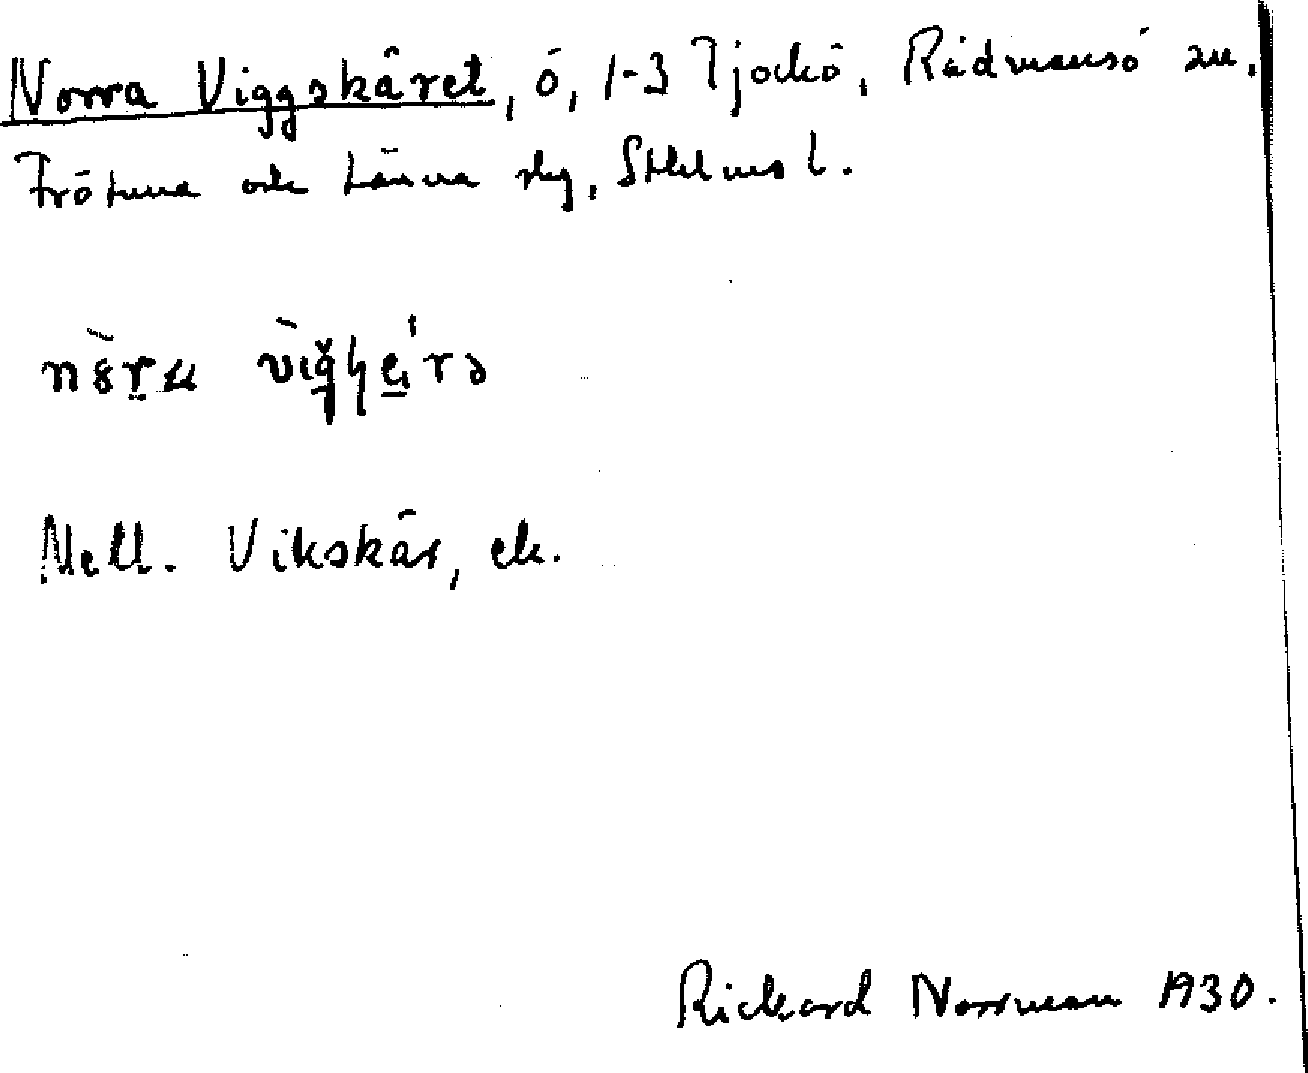 Norra Viggskäret, ö, 1-3 Tjockö, Rådmansö sn,
Frötuna och Länna skg, Sthlms l.
Mell. Vikskär, ek.
Rickard Norrman 1930.